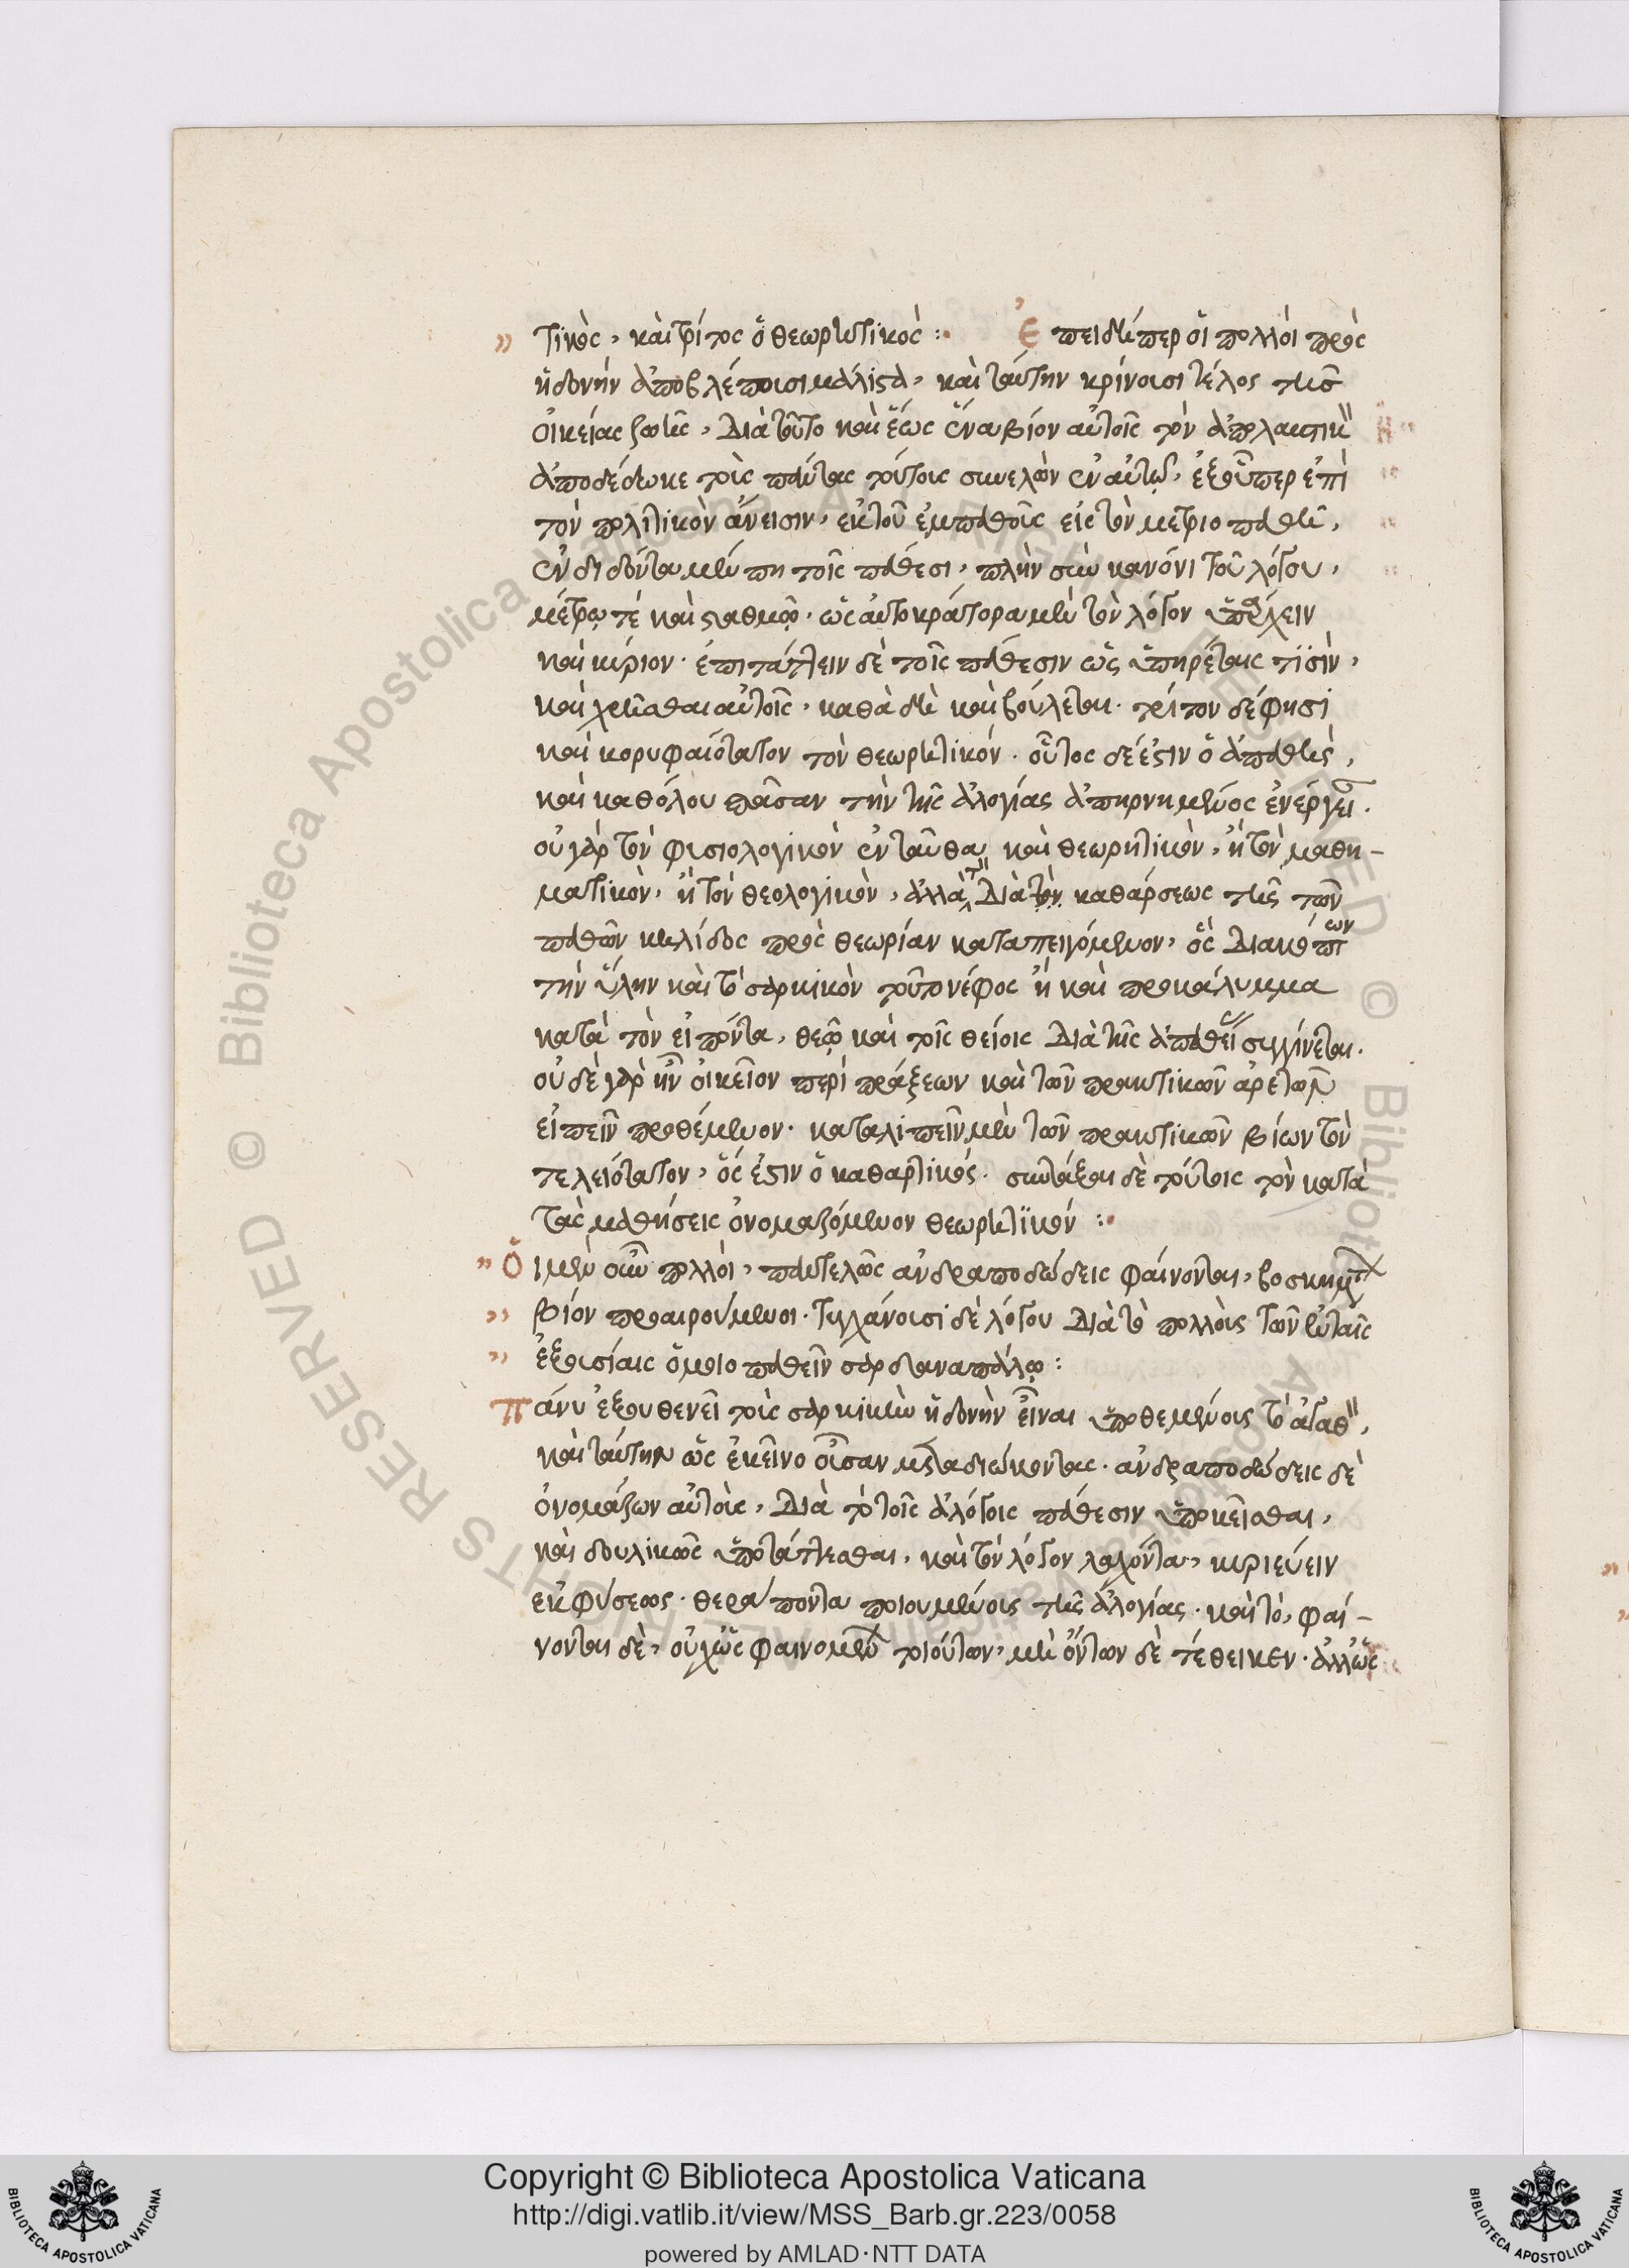 τικὸς, καὶ τρίτος ὁ θεωρητικός :· Ἐπειδήπερ οἱ πολλοὶ πρὸς
ἡδονὴν ἀποβλέπουσι μάλιστα, καὶ ταύτην κρίνουσι τέλος τῆς
οἰκείας ζωῆς, διὰ τοῦτο καὶ ἕως ἕνα βίον αὐτοῖς τὸν ἀπολαυστικ
ἀποδέδωκε τοὺς πάντας τούτοις συνελὼν ἐν αὐτῷ, ἐξ οὗπερ ἐπὶ
τὸν πολιτικὸν ἄνεισιν, ἐκ τοῦ ἐμπαθοῦς εἰς τὸν μετριοπαθῆ,
ἐνδιδόντα μέν πη τοῖς πάθεσι, πλὴν σὺν κανόνι τοῦ λόγου,
μέτρῳ τὲ καὶ σταθμῷ. ὡς αὐτοκράτορα μὲν τὸν λόγον ὑπάρχειν
καὶ κύριον. ἐπιτάττειν δὲ τοῖς πάθεσιν ὡς ὑπηρέταις τισὶν,
καὶ χρῆσθαι αὐτοῖς, καθὰ δὴ καὶ βούλεται. τρίτον δέ φησι
καὶ κορυφαιότατον τὸν θεωρητικόν. οὗτος δέ ἐστιν ὁ ἀπαθὴς,
καὶ καθόλου πᾶσαν τὴν τῆς ἀλογίας ἀπηρνημένος ἐνέργει.
οὐ γὰρ τὸν φυσιολογικὸν ἐνταῦθα καὶ θεωρητικὸν, ἢ τὸν μαθη-
ματικὸν, ἢ τὸν θεολογικὸν, ἀλλὰ τ διὰ τὸν καθάρσεως τῆς τῶν
παθῶν κηλίδος πρὸς θεωρίαν κατεπειγόμενον, ὃς διακόπτων
τὴν ὕλην καὶ τὸ σαρκικὸν τοῦτο νέφος ἢ καὶ προκάλυμμα
κατὰ τὸν εἰπόντα, θεῷ καὶ τοῖς θείοις διὰ τῆς ἀπαθεί συγγίνεται.
οὐδὲ γὰρ ἦν οἰκεῖον περὶ πράξεων καὶ τῶν πρακτικῶν ἀρετῶν
εἰπεῖν προθέμενον. καταλιπεῖν μὲν τῶν πρακτικῶν βίων τὸν
τελειότατον, ὅς ἐστιν ὁ καθαρτικός. συντάξαι δὲ τούτοις τὸν κατὰ
τὰς μαθήσεις ὀνομαζόμενον θεωρητικόν :·
Οἱ μὲν οὖν πολλοὶ, παντελῶς ἀνδραποδώδεις φαίνονται, βοσκημτ
βίον προαιρούμενοι. τυγχάνουσι δὲ λόγου διὰ τὸ πολλοὺς τῶν ἐν ταῖς
ἐξουσίαις ὁμοιοπαθεῖν σαρδαναπάλῳ :
Πάνυ ἐξουθενεῖ τοὺς σαρκικὴν ἡδονὴν εἶναι ὑποθεμένους τὸ ἀγαθ,
καὶ ταύτην ὡς ἐκεῖνο οὖσαν μεταδιώκοντας. ἀνδραποδώδεις δὲ
ὀνομάζων αὐτοὺς, διὰ τὸ τοῖς ἀλόγοις πάθεσιν ὑποκεῖσθαι,
καὶ δουλικῶς ὑποτάττεσθαι, καὶ τὸν λόγον λαχόντα, κυριεύειν
ἐκ φύσεως. θεράποντα ποιουμένους τῆς ἀλογίας. καὶ τὸ, φαί-
νονται δὲ, οὐχ ὡς φαινομένων τοιούτων, μὴ ὄντων δὲ τέθεικεν. ἀλλ' ὡς
Copyright © Biblioteca Apostolica Vaticana
http://digi.vatlib.it/view/MSS_Barb.gr.223/0058
powered by AMLAD·NTT DATA